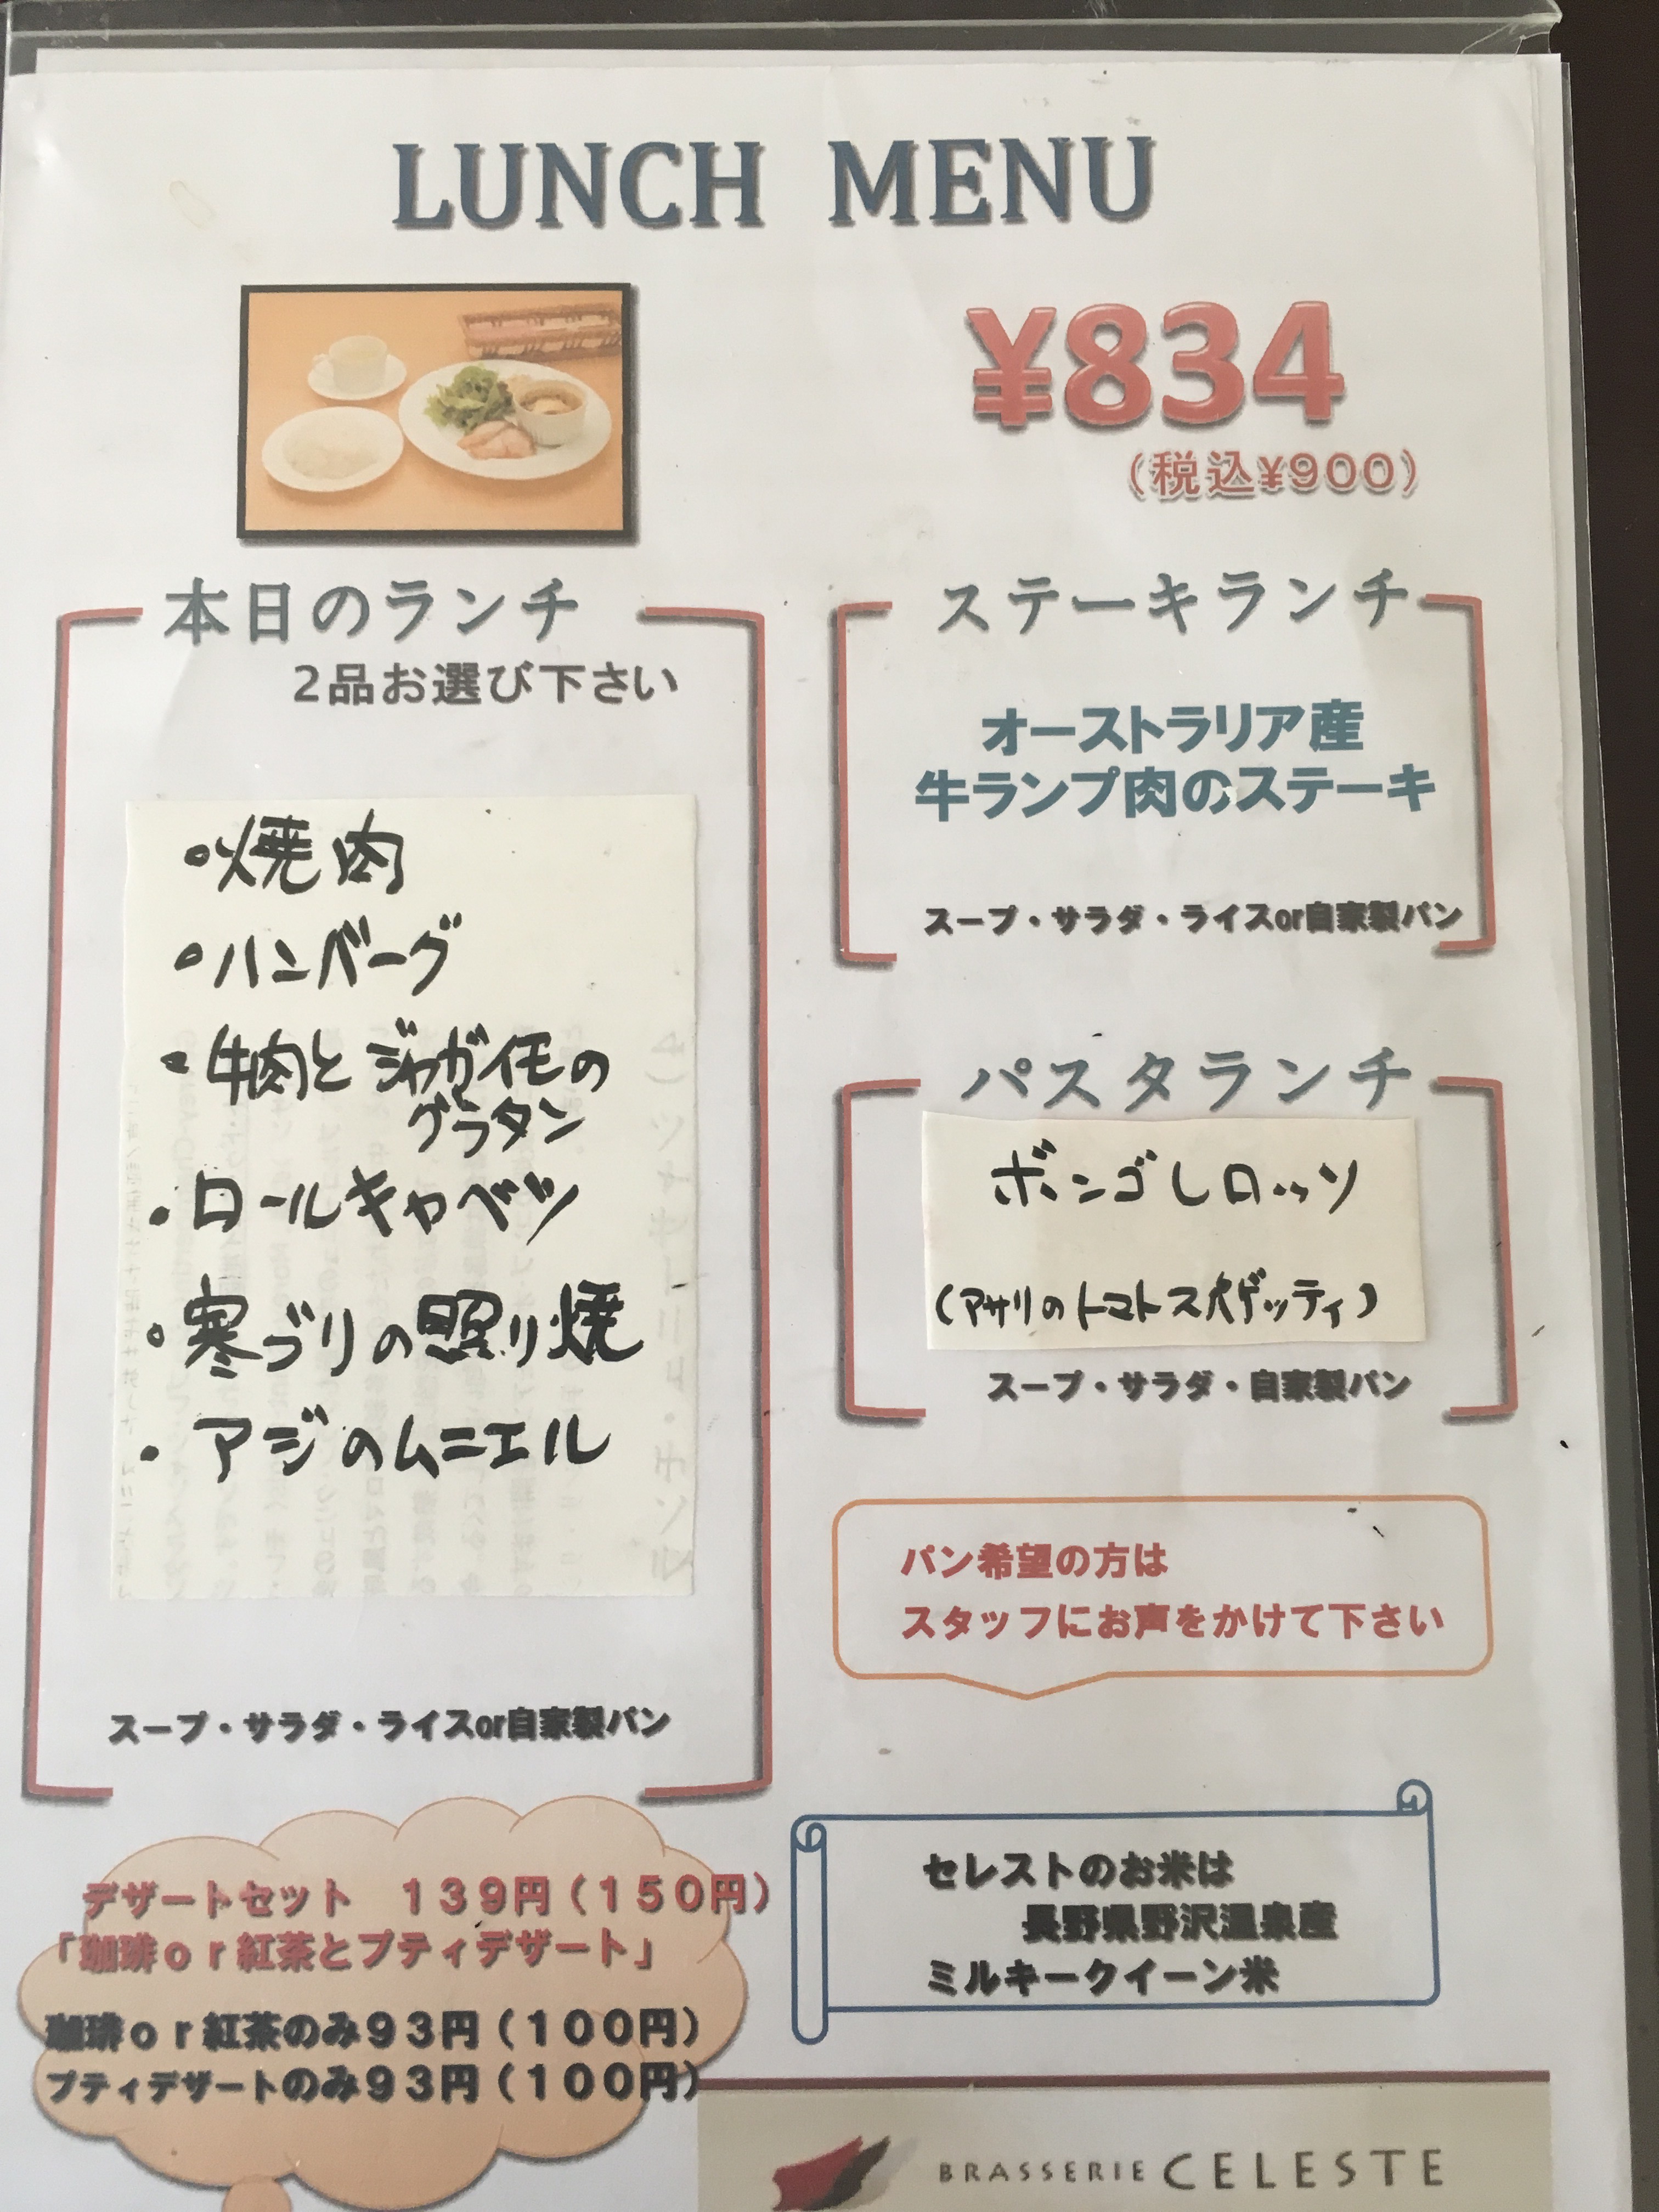 LUNCH MENU
¥834
（税込¥900）
本日のランチ
2品お選び下さい
・焼肉
・ハンバーグ
・牛肉とジャガイモの
グラタン
・ロールキャベツ
・寒ブリの照り焼
・アジのムニエル
スープ・サラダ・ライスor自家製パン
ステーキランチ
オーストラリア産
牛ランプ肉のステーキ
スープ・サラダ・ライスor自家製パン
パスタランチ
ボンゴレロッソ
（アサリのトマトスパゲッティ）
スープ・サラダ・自家製パン
パン希望の方は
スタッフにお声をかけて下さい
デザートセット　１３９円（１５０円）
「珈琲ｏｒ紅茶とプティデザート」
珈琲ｏｒ紅茶のみ９３円（１００円）
プティデザートのみ９３円（１００円）
セレストのお米は
長野県野沢温泉産
ミルキークイーン米
BRASSERIE CELESTE